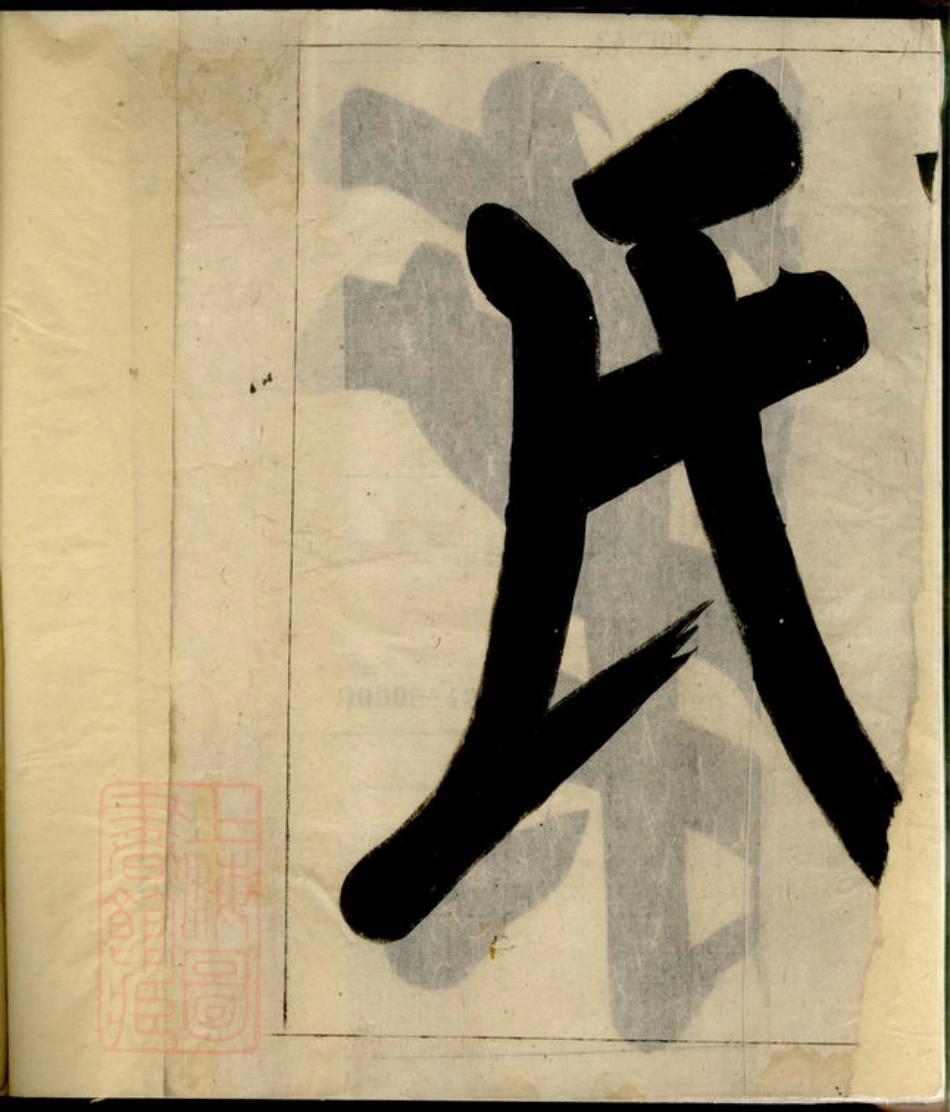 氏
上海圖
書館藏